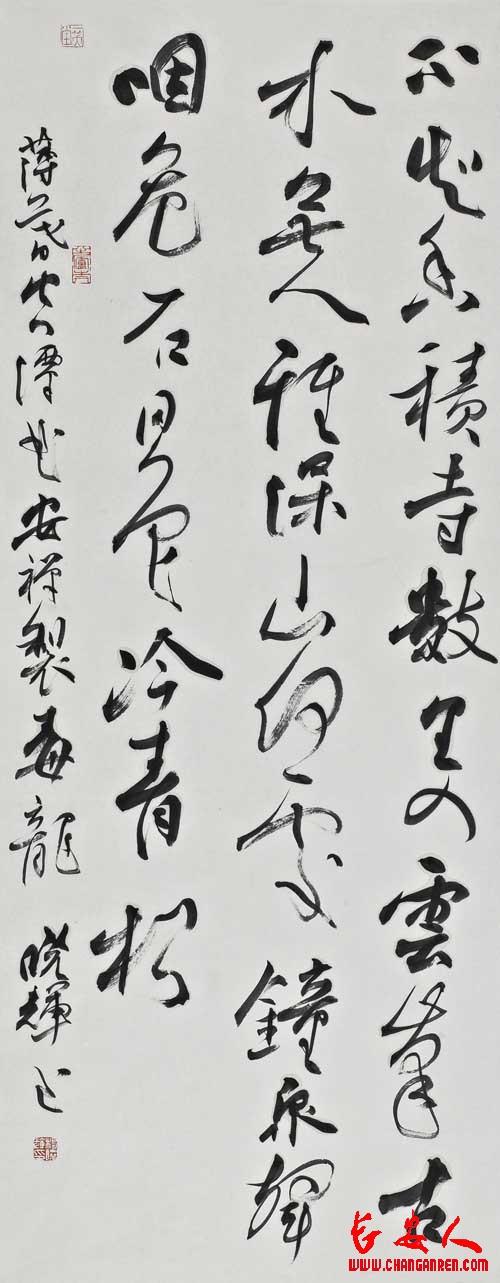 不知香積寺數里入雲峯古
木無人徑深山何處鐘泉聲
咽危石日色冷青松
薄暮空潭曲安禪製毒龍 曉輝書
长安人
WWW.CHANGANREN.COM